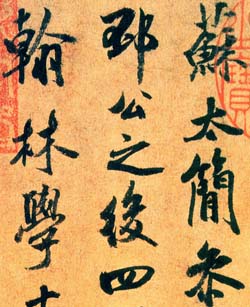 蘇太簡參
邳公之後四
翰林學士